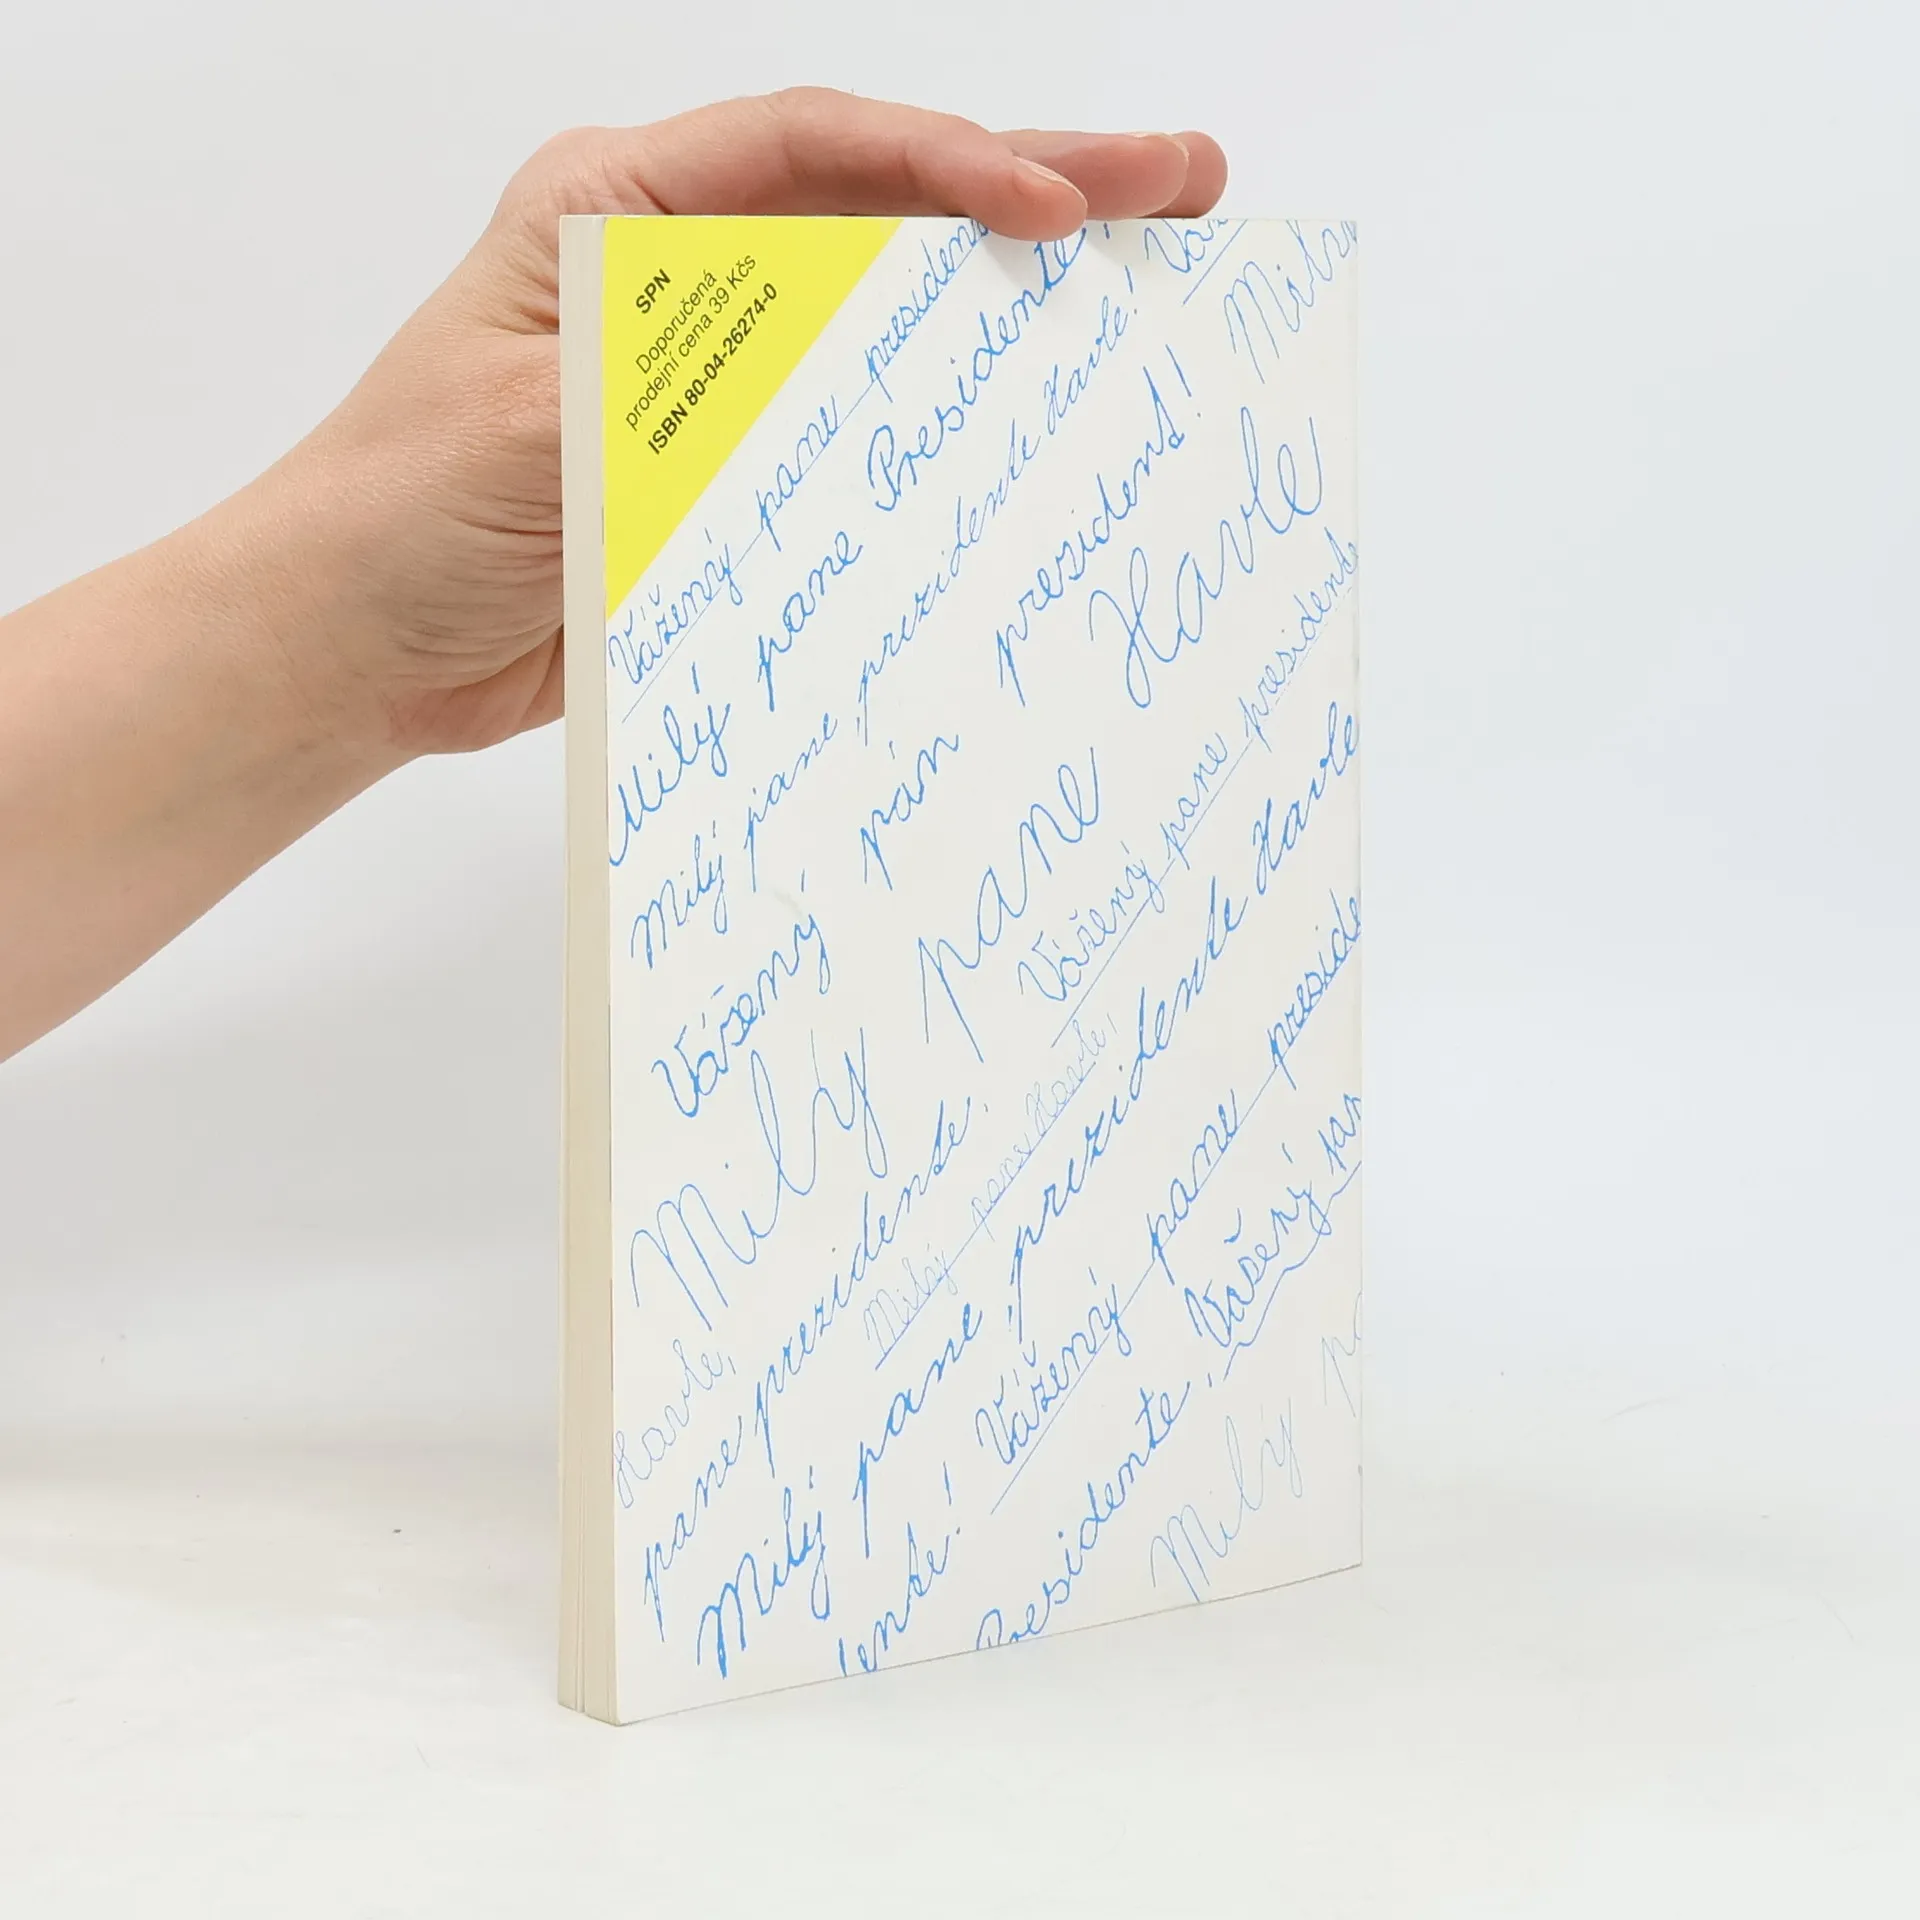 SPN
Doporučená
prodejní cena 39 Kčs
ISBN 80-04-26274-0
Vážený pane president
Milý pane Presidente!
Milý pane prezidente Havle!
Vážený pán prezident!
Milý pane Havle
Vážený pane president
Havle,
pane prezidente!
Milý pane Havle,
Milý pane prezidente Havle
Vážený pane preside
Presidente, Vášený
Milý